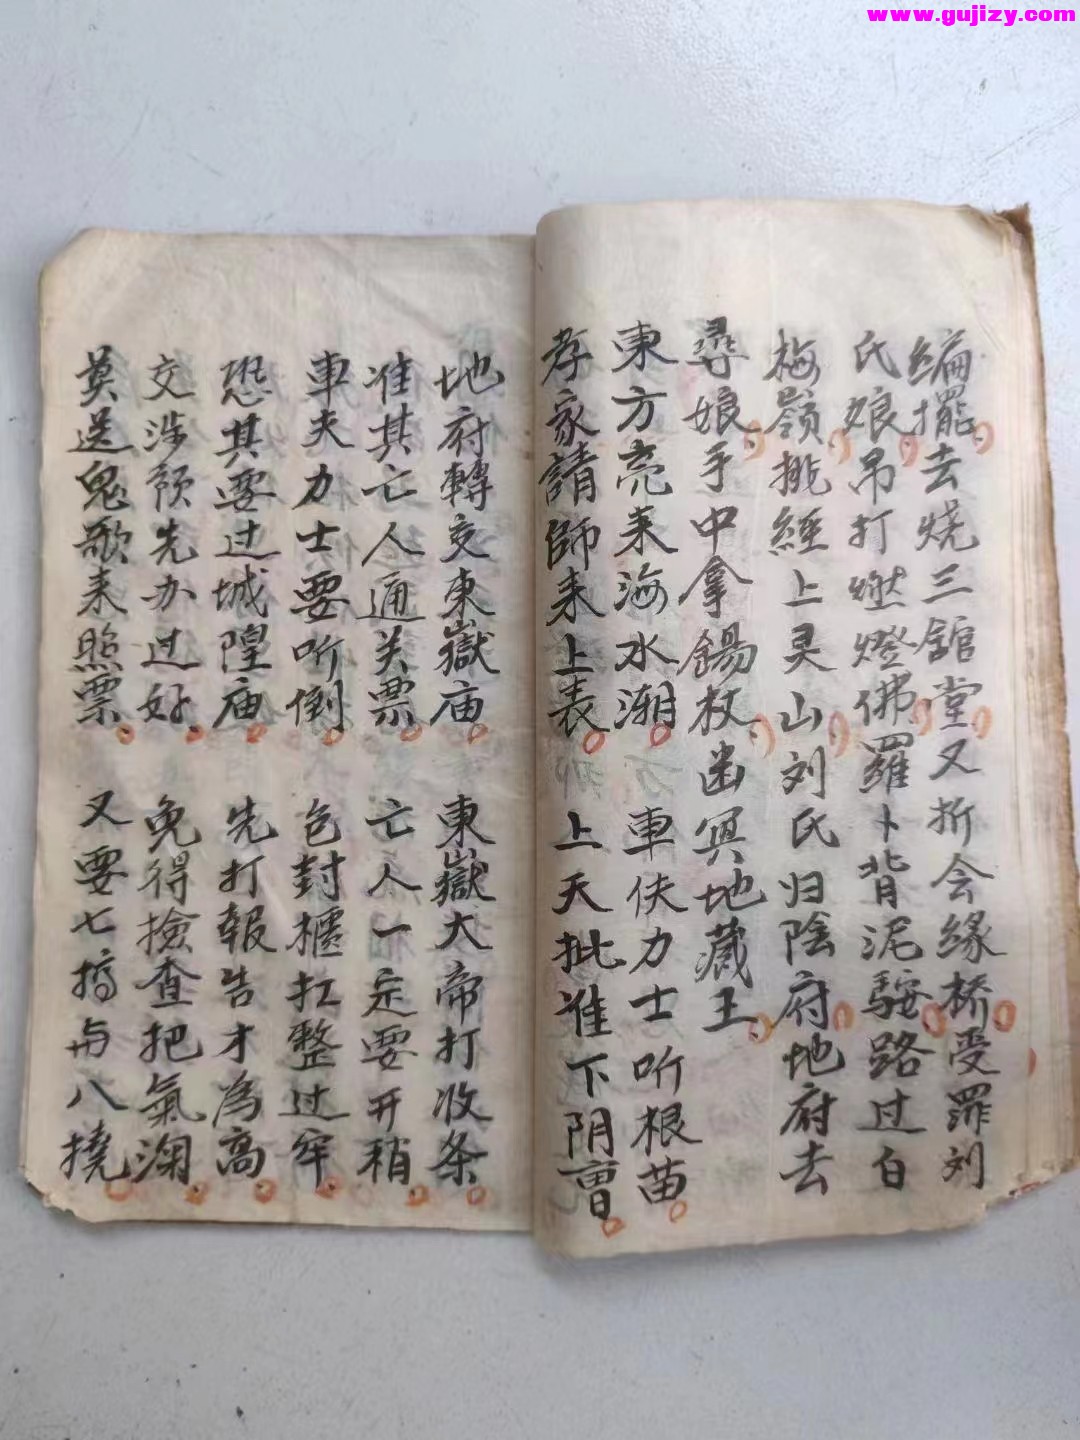 www.gujizy.com
編擺去烧三舘堂又折会缘桥受罪刘
氏娘吊打燃燈佛羅卜背泥騐路过白
梅嶺挑經上灵山刘氏归陰府地府去
尋娘手中拿錫杖幽冥地藏王
東方亮来海水潮 車伕力士听根苗
孝家請師来上表 上天批准下阴曹
地府轉交東嶽庙 東嶽大帝打收条
准其亡人通关票 亡人一定要开稍
車夫力士要听倒 包封櫃扛整过牢
恐其要过城隍庙 先打報告才為高
交涉预先办过好 免得撿查把氣淘
莫送鬼歌来照票 又要七搞与八撓